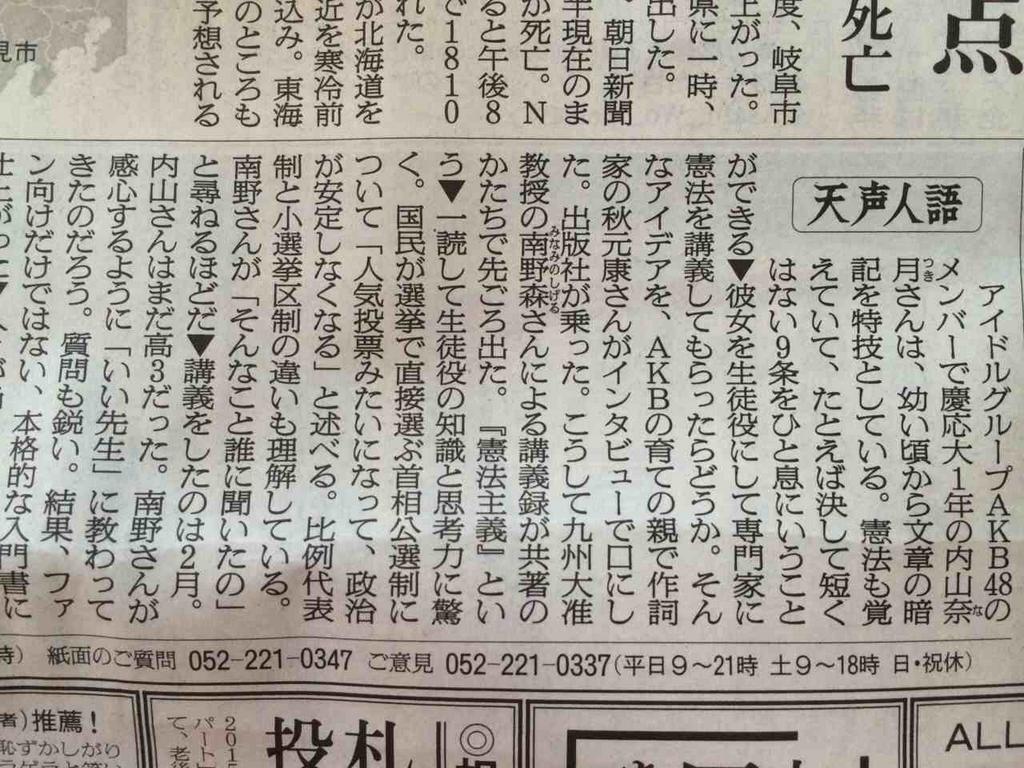 点
死亡
度、岐阜市
上がった。
県に一時、
出した。
朝日新聞
半現在のま
が死亡。N
ると午後8
で1810
れた。
が北海道を
近を寒冷前
込み。東海
のところも
予想される
見市
天声人語
アイドルグループAKB48の
メンバーで慶応大1年の内山奈
な
月さんは、幼い頃から文章の暗
つき
記を特技としている。憲法も覚
えていて、たとえば決して短く
はない9条をひと息にいうこと
ができる▼彼女を生徒役にして専門家に
憲法を講義してもらったらどうか。そん
なアイデアを、AKBの育ての親で作詞
家の秋元康さんがインタビューで口にし
た。出版社が乗った。こうして九州大准
教授の南野森さんによる講義録が共著の
みなみのしげる
かたちで先ごろ出た。『憲法主義』とい
う▼一読して生徒役の知識と思考力に驚
く。国民が選挙で直接選ぶ首相公選制に
ついて「人気投票みたいになって、政治
が安定しなくなる」と述べる。比例代表
制と小選挙区制の違いも理解している。
南野さんが「そんなこと誰に聞いたの」
と尋ねるほどだ▼講義をしたのは2月。
内山さんはまだ高3だった。南野さんが
感心するように「いい先生」に教わって
きたのだろう。質問も鋭い。結果、ファ
ン向けだけではない、本格的な入門書に
仕上がって
待) 紙面のご質問 052-221-0347 ご意見 052-221-0337(平日9~21時 土9~18時 日・祝休)
ALL
◎
札
投
2015
パート
て、老後
者)推薦!
恥ずかしがり